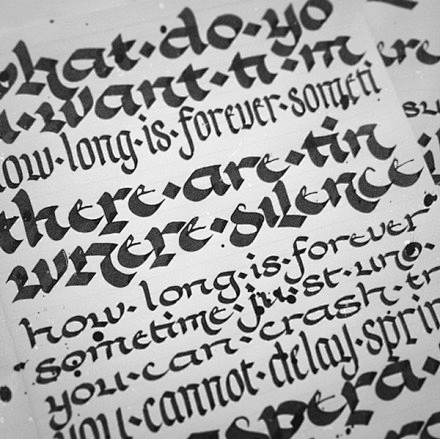 what·do·yo
u·want·tim
how·long·is·forever·someti
there·are·tin
where·silence·i
how·long·is·forever
sometime·just·une·
you·can·crash·tr
you·cannot·delay·sprin
aspera·
ere
su